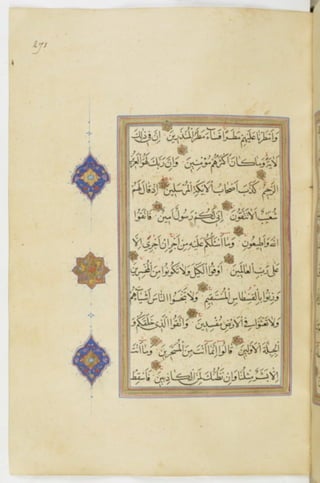 ۲۹۱
وَأَمْطَرْنَا عَلَيْهِمْ مَطَرًا فَسَاءَ مَطَرُ الْمُنْذَرِينَ إِنَّ فِي ذَٰلِكَ
لَآيَةً وَمَا كَانَ أَكْثَرُهُمْ مُؤْمِنِينَ وَإِنَّ رَبَّكَ لَهُوَ الْعَزِيزُ
الرَّحِيمُ كَذَّبَ أَصْحَابُ لْأَيْكَةِ الْمُرْسَلِينَ إِذْ قَالَ لَهُمْ
شُعَيْبٌ أَلَا تَتَّقُونَ إِنِّي لَكُمْ رَسُولٌ أَمِينٌ فَاتَّقُوا
اللَّهَ وَأَطِيعُونِ وَمَا أَسْأَلُكُمْ عَلَيْهِ مِنْ أَجْرٍ إِنْ أَجْرِيَ إِلَّا
عَلَىٰ رَبِّ الْعَالَمِينَ أَوْفُوا الْكَيْلَ وَلَا تَكُونُوا مِنَ الْمُخْسِرِينَ
وَزِنُوا بِالْقِسْطَاسِ الْمُسْتَقِيمِ وَلَا تَبْخَسُوا النَّاسَ أَشْيَاءَهُمْ
وَلَا تَعْثَوْا فِي الْأَرْضِ مُفْسِدِينَ وَاتَّقُوا الَّذِي خَلَقَكُمْ وَ
الْجِبِلَّةَ الْأَوَّلِينَ قَالُوا إِنَّمَا أَنْتَ مِنَ الْمُسَحَّرِينَ وَمَا أَنْتَ
إِلَّا بَشَرٌ مِثْلُنَا وَإِنْ نَظُنُّكَ لَمِنَ الْكَاذِبِينَ فَأَسْقِطْ